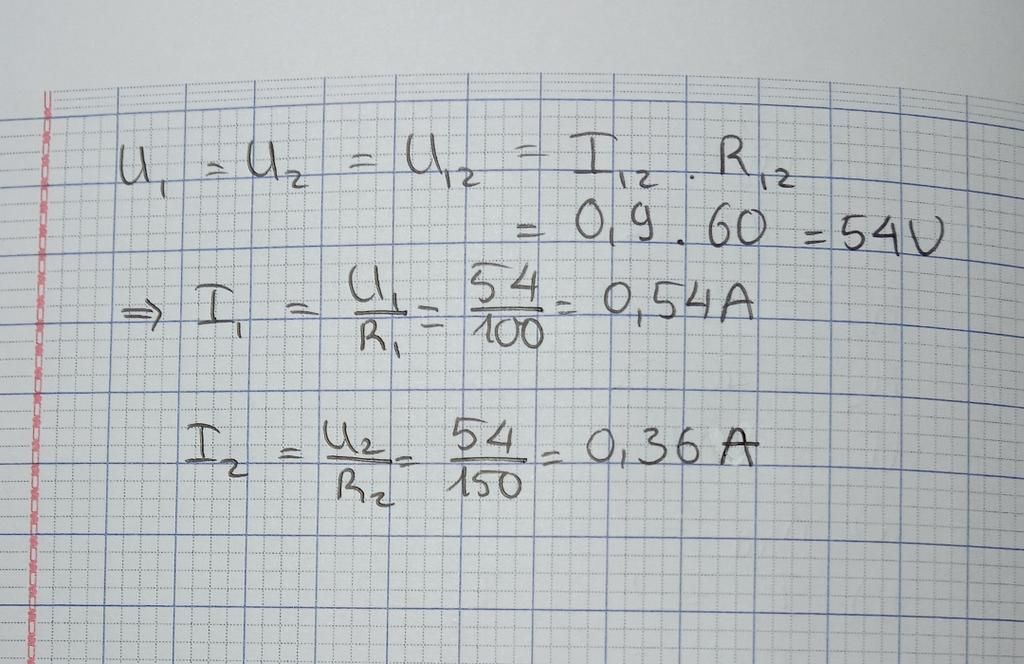 U₁ = U₂ = U₁₂ = I₁₂ . R₁₂
= 0,9 . 60 = 54V
⇒ I₁ = U₁/R₁ = 54/100 = 0,54A
I₂ = U₂/R₂ = 54/150 = 0,36 A